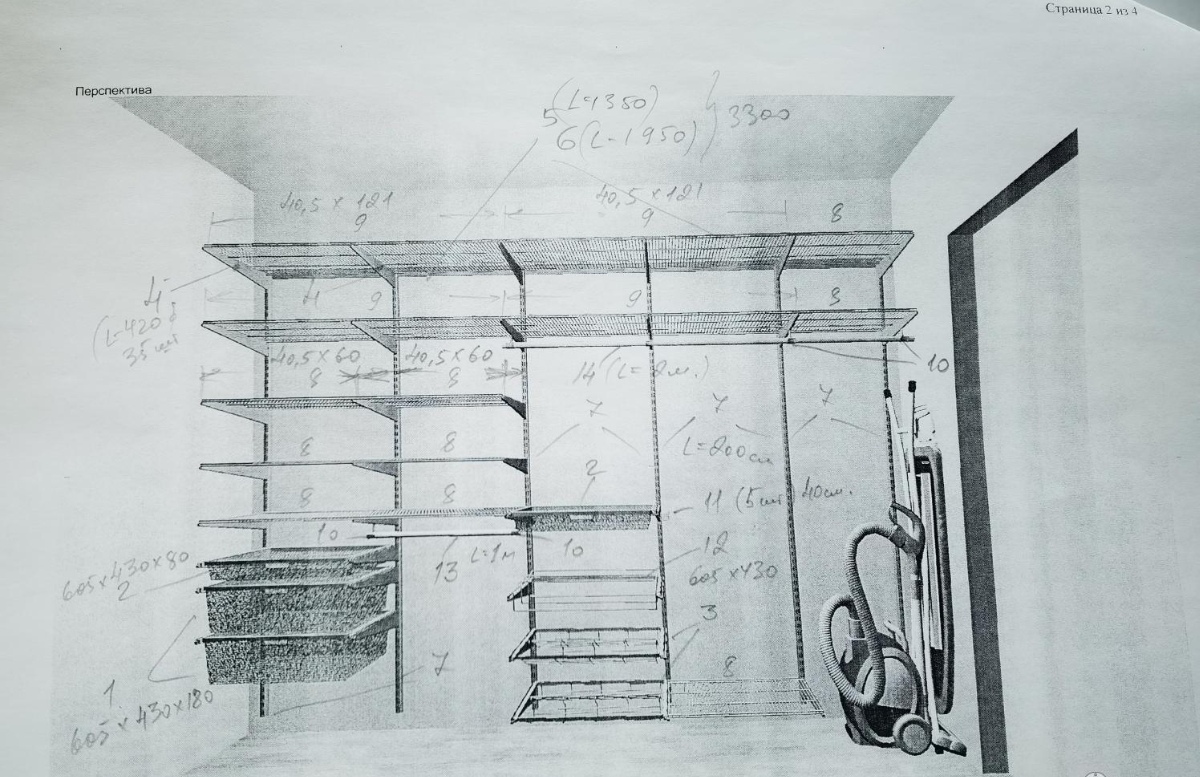 Страница 2 из 4
Перспектива
(L=1350)
5
6 (L-1950) } 3300
40,5 × 121
40,5 × 121
9
9
8
4
4
9
9
8
(L=420
35 шт
40,5×60
40,5×60
8
8
14 (L=2м.)
10
7
7
7
8
8
L=200см
2
8
8
11 (5шт) 40см.
10
10
12
L=1м
13
605×430
605×430×80
2
3
1
7
8
605×430×180